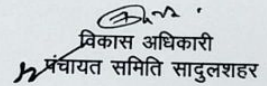 विकास अधिकारी
पंचायत समिति सादुलशहर